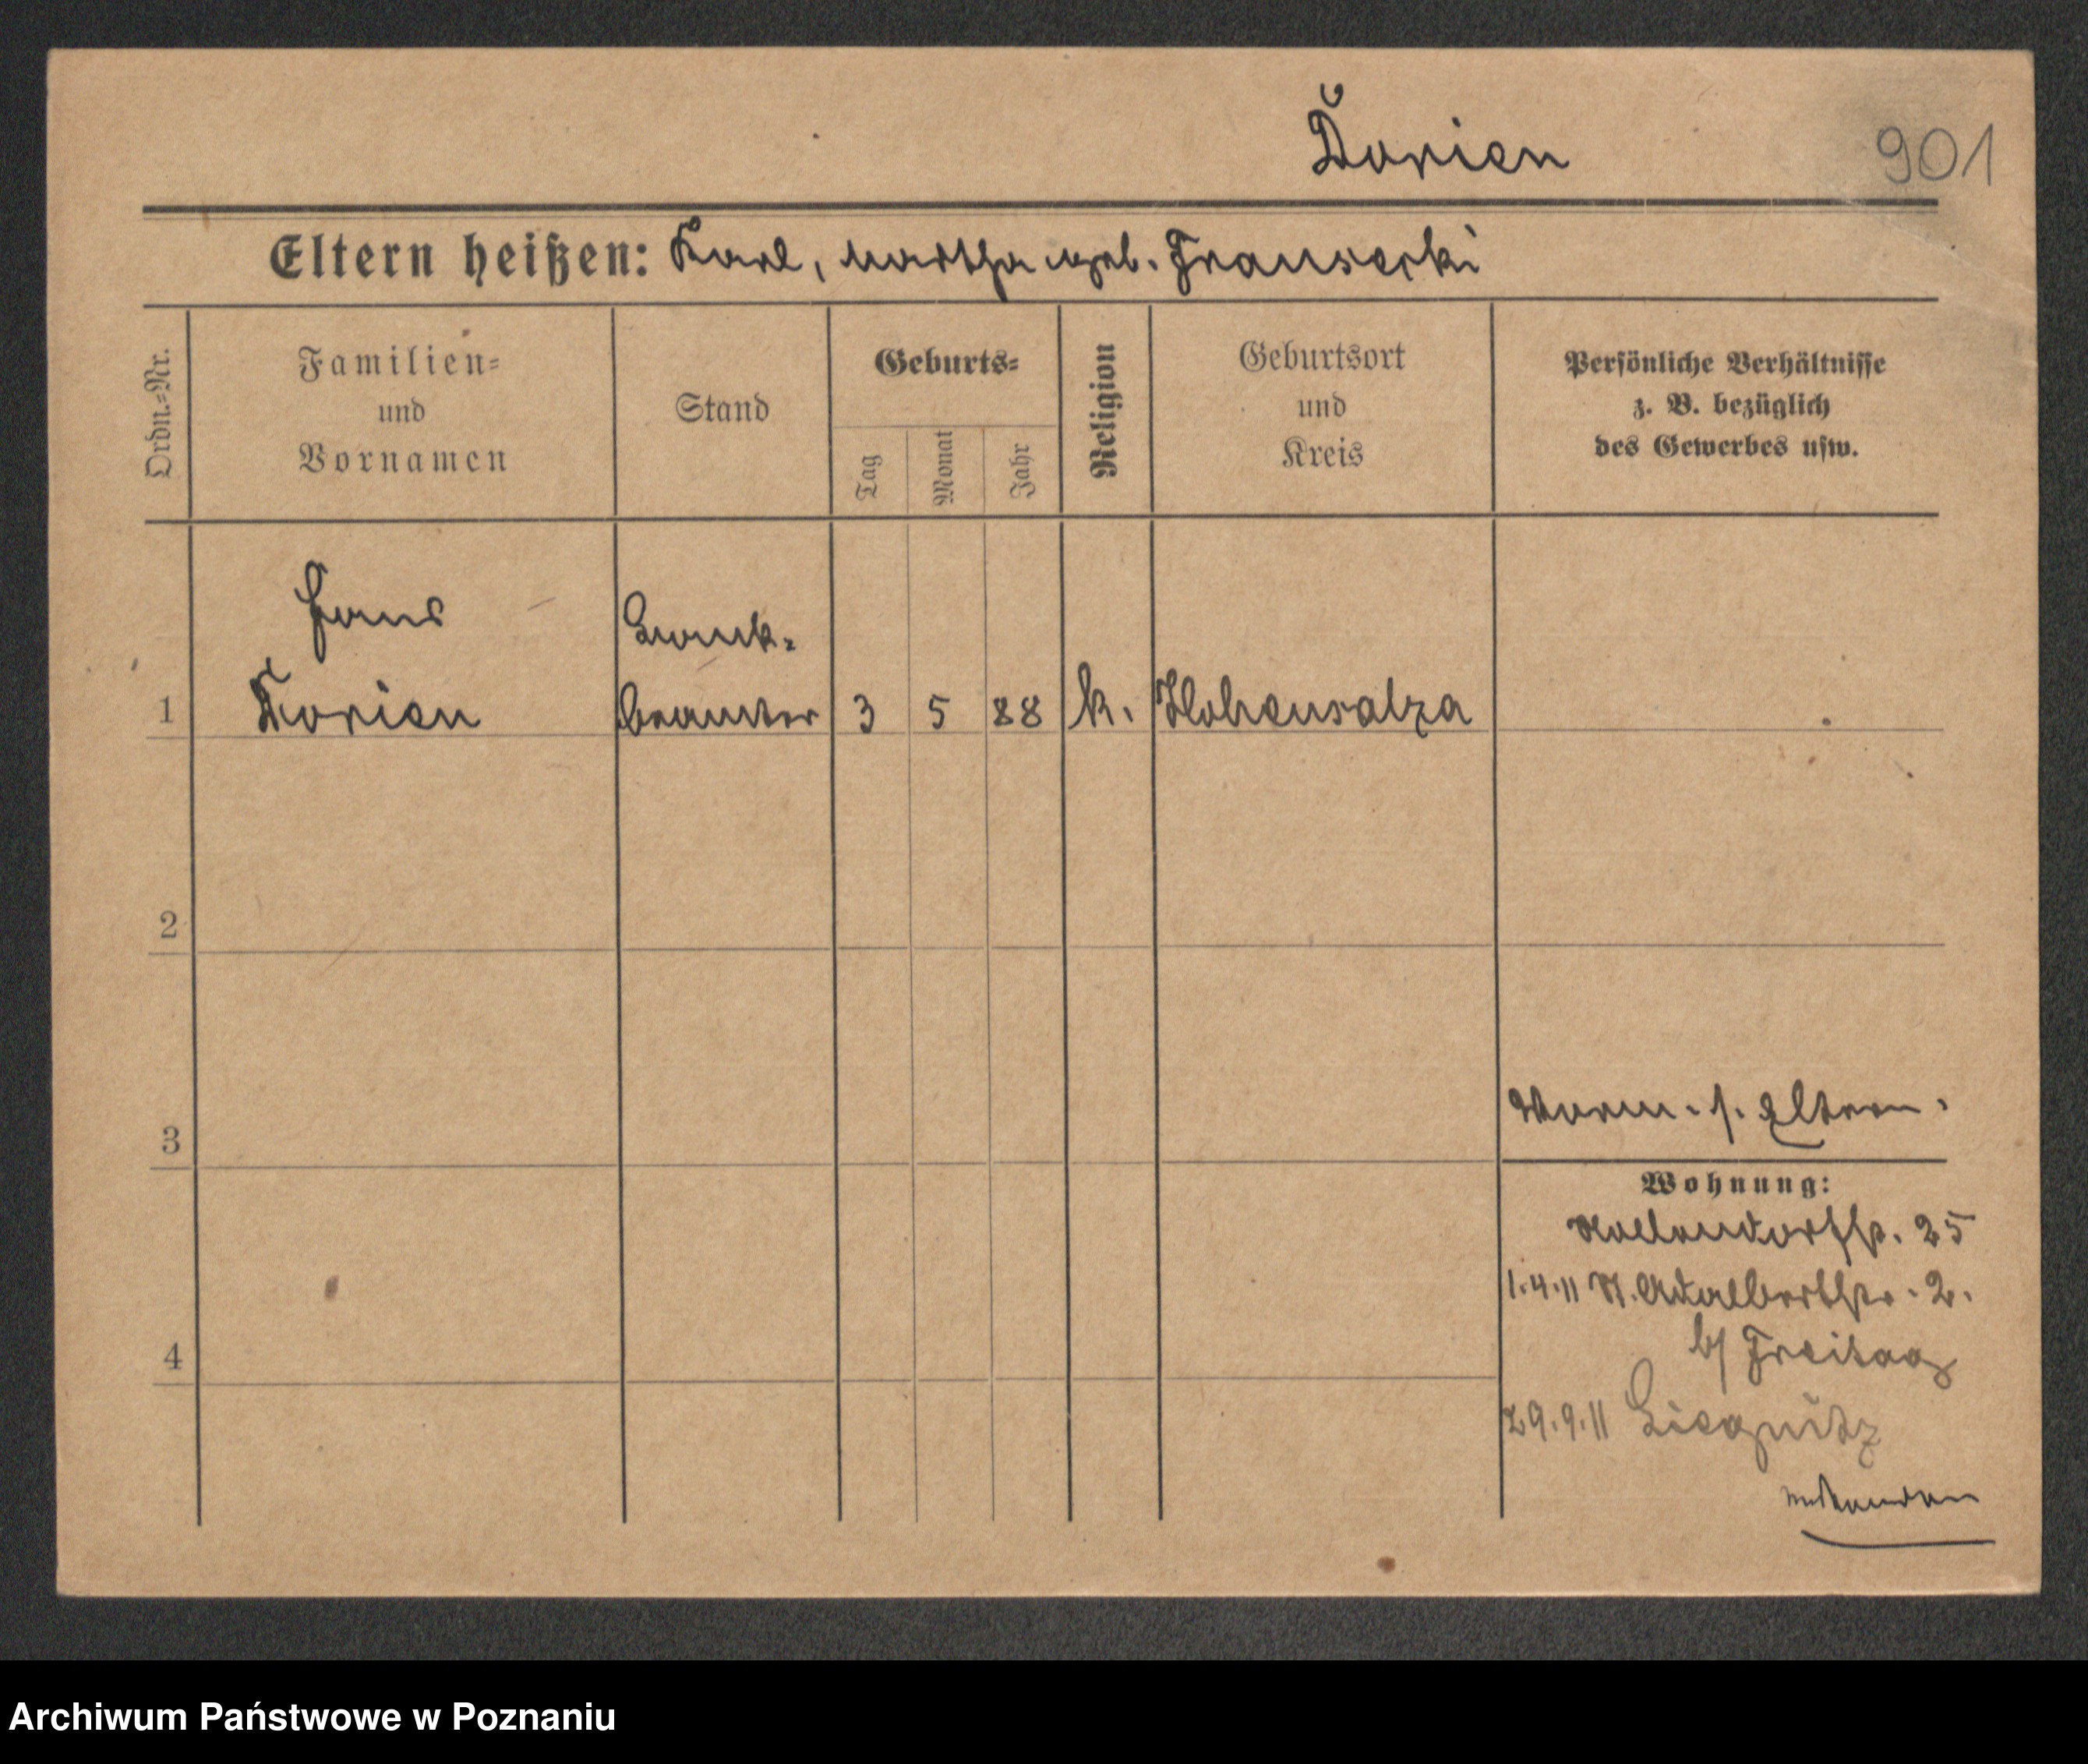 Dorien
901
Eltern heißen: Karl, Martha geb. Fransecki
Ordn.-Nr.
Familien-
und
Vornamen
Stand
Geburts-
Tag
Monat
Jahr
Religion
Geburtsort
und
Kreis
Persönliche Verhältnisse
z. B. bezüglich
des Gewerbes usw.
Hans
Dorien
Bank-
beamter
1
3
5
88
k.
Hohensalza
2
3
Vorm. s. Eltern.
Wohnung:
Nollendorfstr. 25
1.4.11 St. Adalbertstr. 2.
b/ Freitag
29.9.11 Liegnitz
4
Archiwum Państwowe w Poznaniu